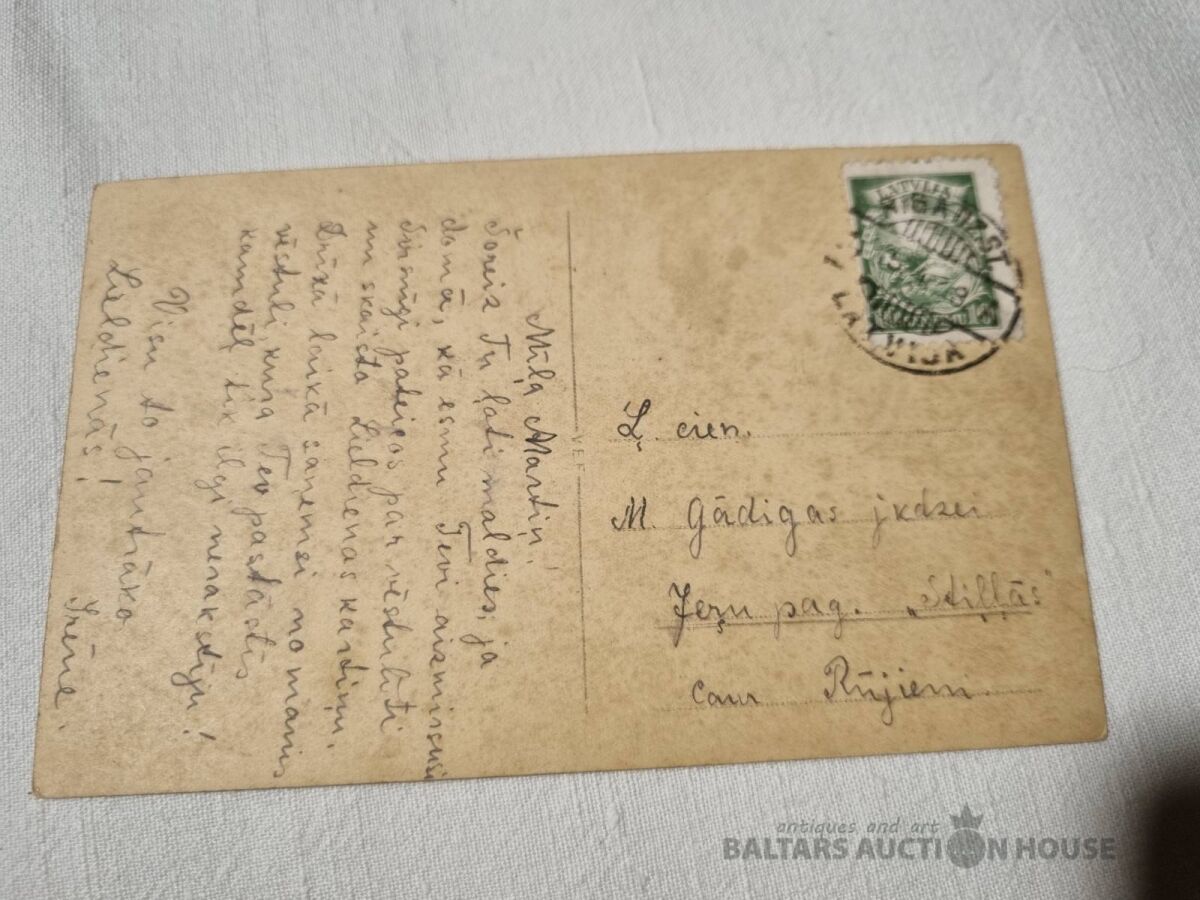 Mīļo Martiņ!
Šoreiz Tu ļoti maldies, ja
domā, kā esmu Tevi aizmirsusi
Sirsnīgi pateicos par vēstulīti
un skaisto Lieldienas kartiņu.
Drīzā laikā saņemsi no manis
vēstuli, kuŗa Tev pastāstīs
kamdēļ tik ilgi nerakstīju!
Visu to jautrāko
Lieldienās!
Irēne.
VEF
LATVIJA
RIGA
LATVIJA
Ļ. cien.
M. Gādigas jkdzei
Jeŗu pag. „Stiļļās"
caur Rūjieni
antiques and art
BALTARS AUCTION HOUSE